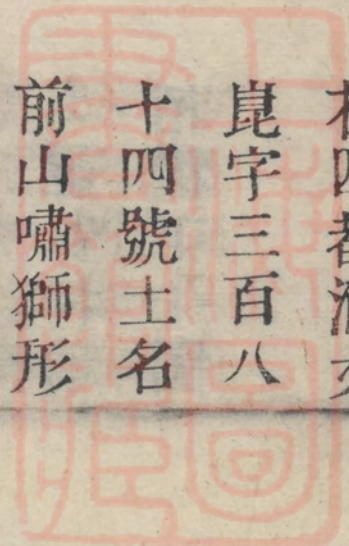 四者
崑字三百八
十四號土名
前山嘯獅形